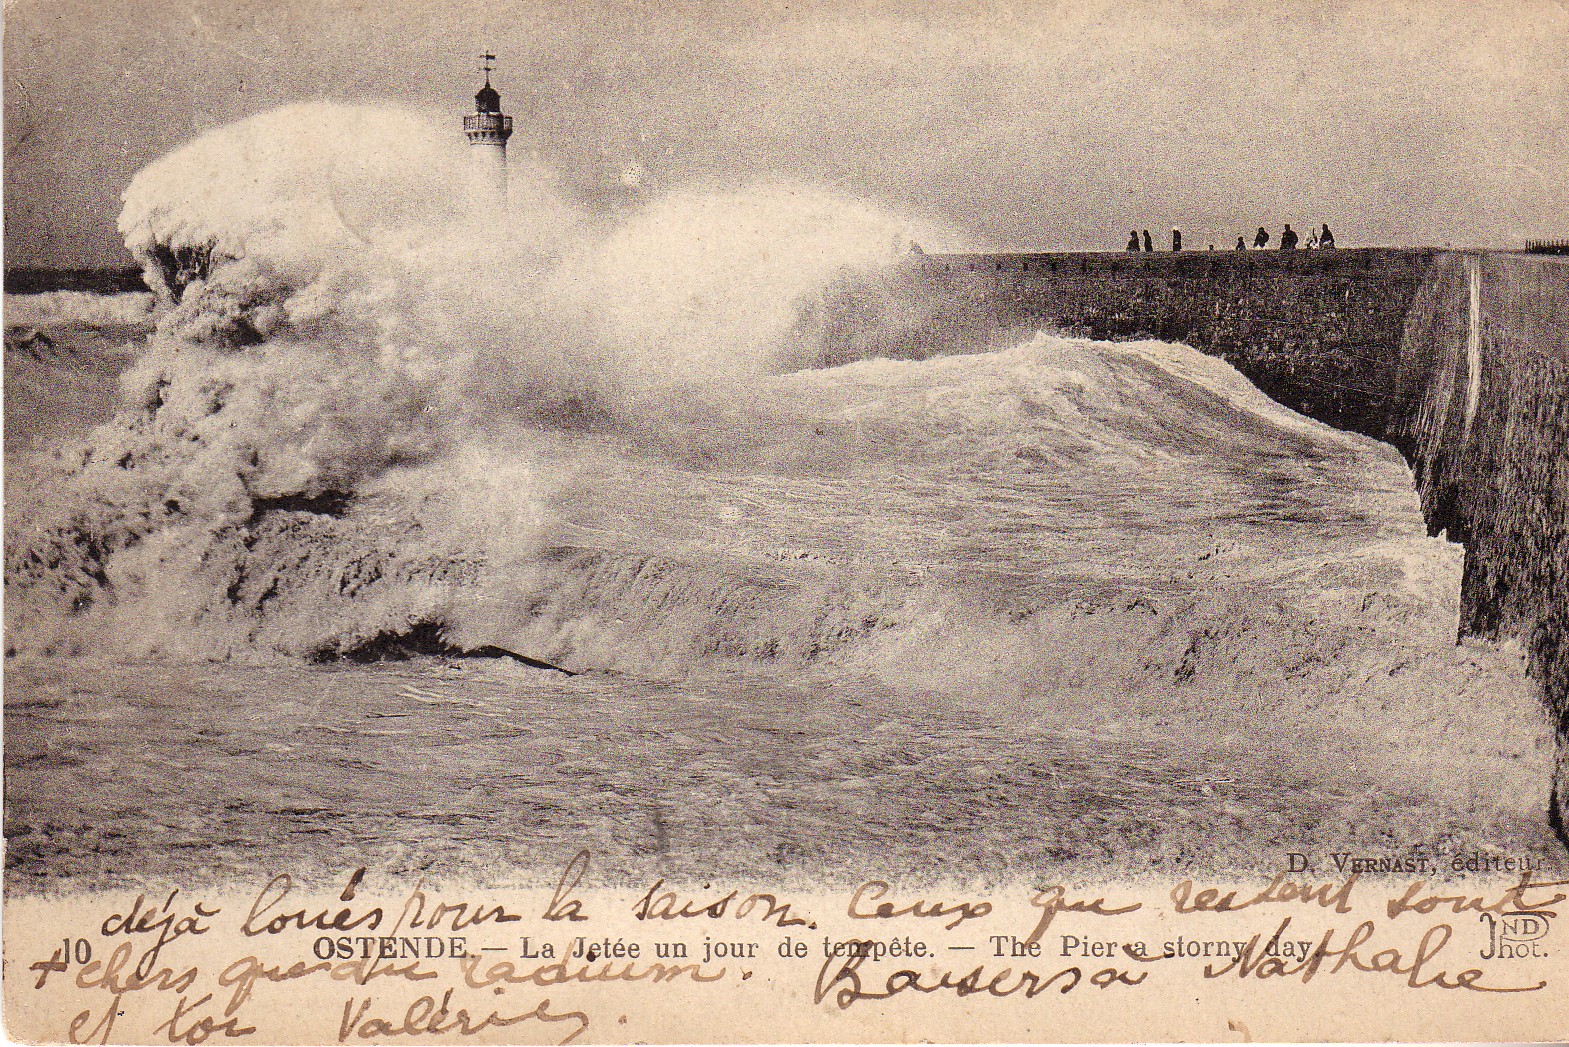 D. VERNAST, éditeur
déjà loués pour la saison. Ceux qui restent sont
10 OSTENDE. — La Jetée un jour de tempête. — The Pier a storny day. ND Phot.
+ chers que du radium. Baisers à Nathalie
et toi Valérie.